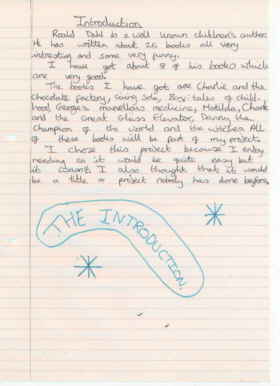 Introduction
Roald Dahl is a well known children's author
He has written about 26 books all very
intresting and some very funny.
I have got about 8 of his books which
are very good.
The books I have got are Charlie and the
chocolate factory, Going Solo, Boy: tales of child-
hood, George's marvellous medicine, Matilda, Charlie
and the Great Glass Elevator, Danny the
Champion of the World and the witches. All
of these books will be part of my project.
I chose this project because I enjoy
reading so it would be quite easy but
it I also thought that it would
be a title or project nobody has done before.
THE INTRODUCTION.